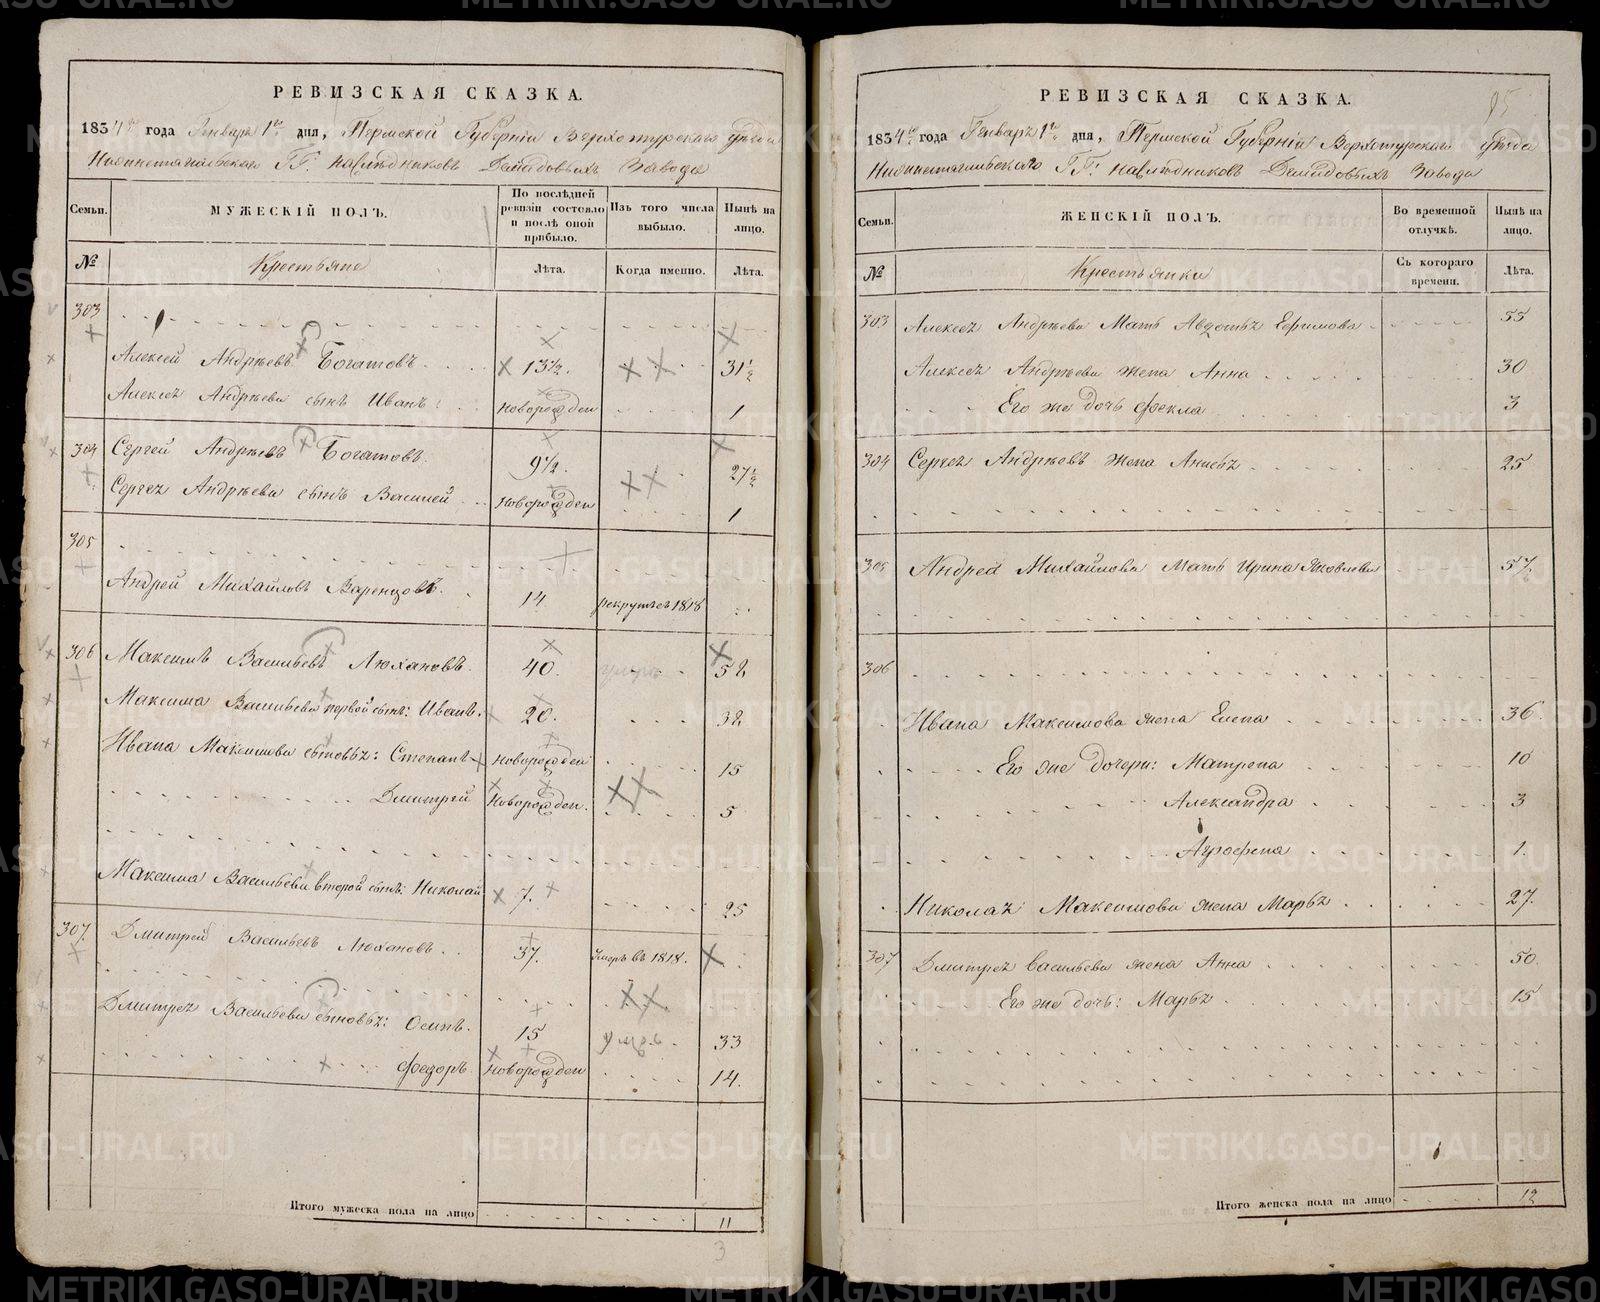 РЕВИЗСКАЯ СКАЗКА.
1834го года Генваря 1го дня, Пермской Губернiи Верхотурскаго уѣзда
Нижнетагильскаго ГГ. наслѣдниковъ Демидовыхъ Завода
Семьи.
МУЖЕСКIЙ ПОЛЪ.
По послѣдней ревизiи состояло и послѣ оной прибыло.
Изъ того числа выбыло.
Нынѣ на лицо.
№
Крестьяне
Лѣта.
Когда именно.
Лѣта.
303
Алексей Андрѣевъ Богатовъ 13½. 31½
Алексея Андрѣева сынъ Иванъ: новорожден 1
304 Сергей Андрѣевъ Богатовъ. 9½. 27½
Сергея Андрѣева сынъ Василей новорожден 1
305
Андрей Михайловъ Варенцовъ. 14 рекрутъ въ 1818
306 Максимъ Васильевъ Люхановъ. 40. умеръ 58
Максима Васильева первой сынъ: Иванъ. 20. 38
Ивана Максимова сыновья: Степанъ новорожден 15
Дмитрей новорожден. 5
Максима Васильева второй сынъ: Николай 7. 25
307. Дмитрей Васильевъ Люхановъ. 37. Умеръ въ 1818.
Дмитрея Васильева сыновья: Осипъ. 15 33
Федоръ. новорожден 14.
Итого мужеска пола на лицо 11
3
95
РЕВИЗСКАЯ СКАЗКА.
1834го года Генваря 1го дня, Пермской Губернiи Верхотурскаго уѣзда
Нижнетагильскаго ГГ. наслѣдниковъ Демидовыхъ Завода
Семьи.
ЖЕНСКIЙ ПОЛЪ.
Во временной отлучкѣ.
Нынѣ на лицо.
№
Крестьянки
Съ котораго времени.
Лѣта.
303 Алексея Андрѣева Мать Авдотья Ефимова 55
Алексея Андрѣева жена Анна 30
Его же дочь Фекла 3
304 Сергея Андрѣевъ жена Анисья 25
305 Андрея Михайлова Мать Ирина Яковлева 57.
306
Ивана Максимова жена Елена 36.
Его же дочери: Матрена 10
Александра 3
Агрофена 1.
Николая Максимова жена Марья 27.
307 Дмитрея Васильева жена Анна 50.
Его же дочь: Марья 15
Итого женска пола на лицо 12
METRIKI.GASO-URAL.RU